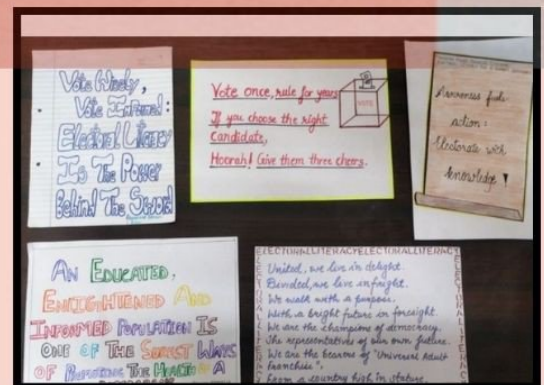 Vote Wisely,
Vote Informed:
Electoral Literacy
Is The Power
Behind The
Vote once, rule for years
If you choose the right
candidate,
Hoorah! Give them three cheers.
VOTE
Awareness fuels
action:
Electorate with
knowledge
AN EDUCATED,
ENLIGHTENED AND
INFORMED POPULATION IS
ONE OF THE SUREST WAYS
OF PROMOTING THE HEALTH OF A
ELECTORALLITERACYELECTORALLITERACY
United, we live in delight.
Divided, we live in fright.
We walk with a purpose.
With a bright future in foresight.
We are the champions of democracy.
The representatives of our own future.
We are the bearers of "Universal Adult
Franchise".
From a country high in stature.